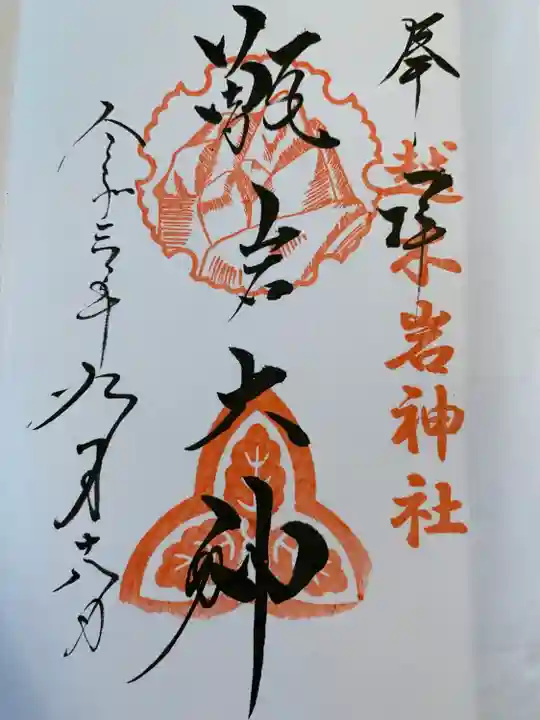 奉拝
越木岩神社
甑岩大神
令和三年九月十八日